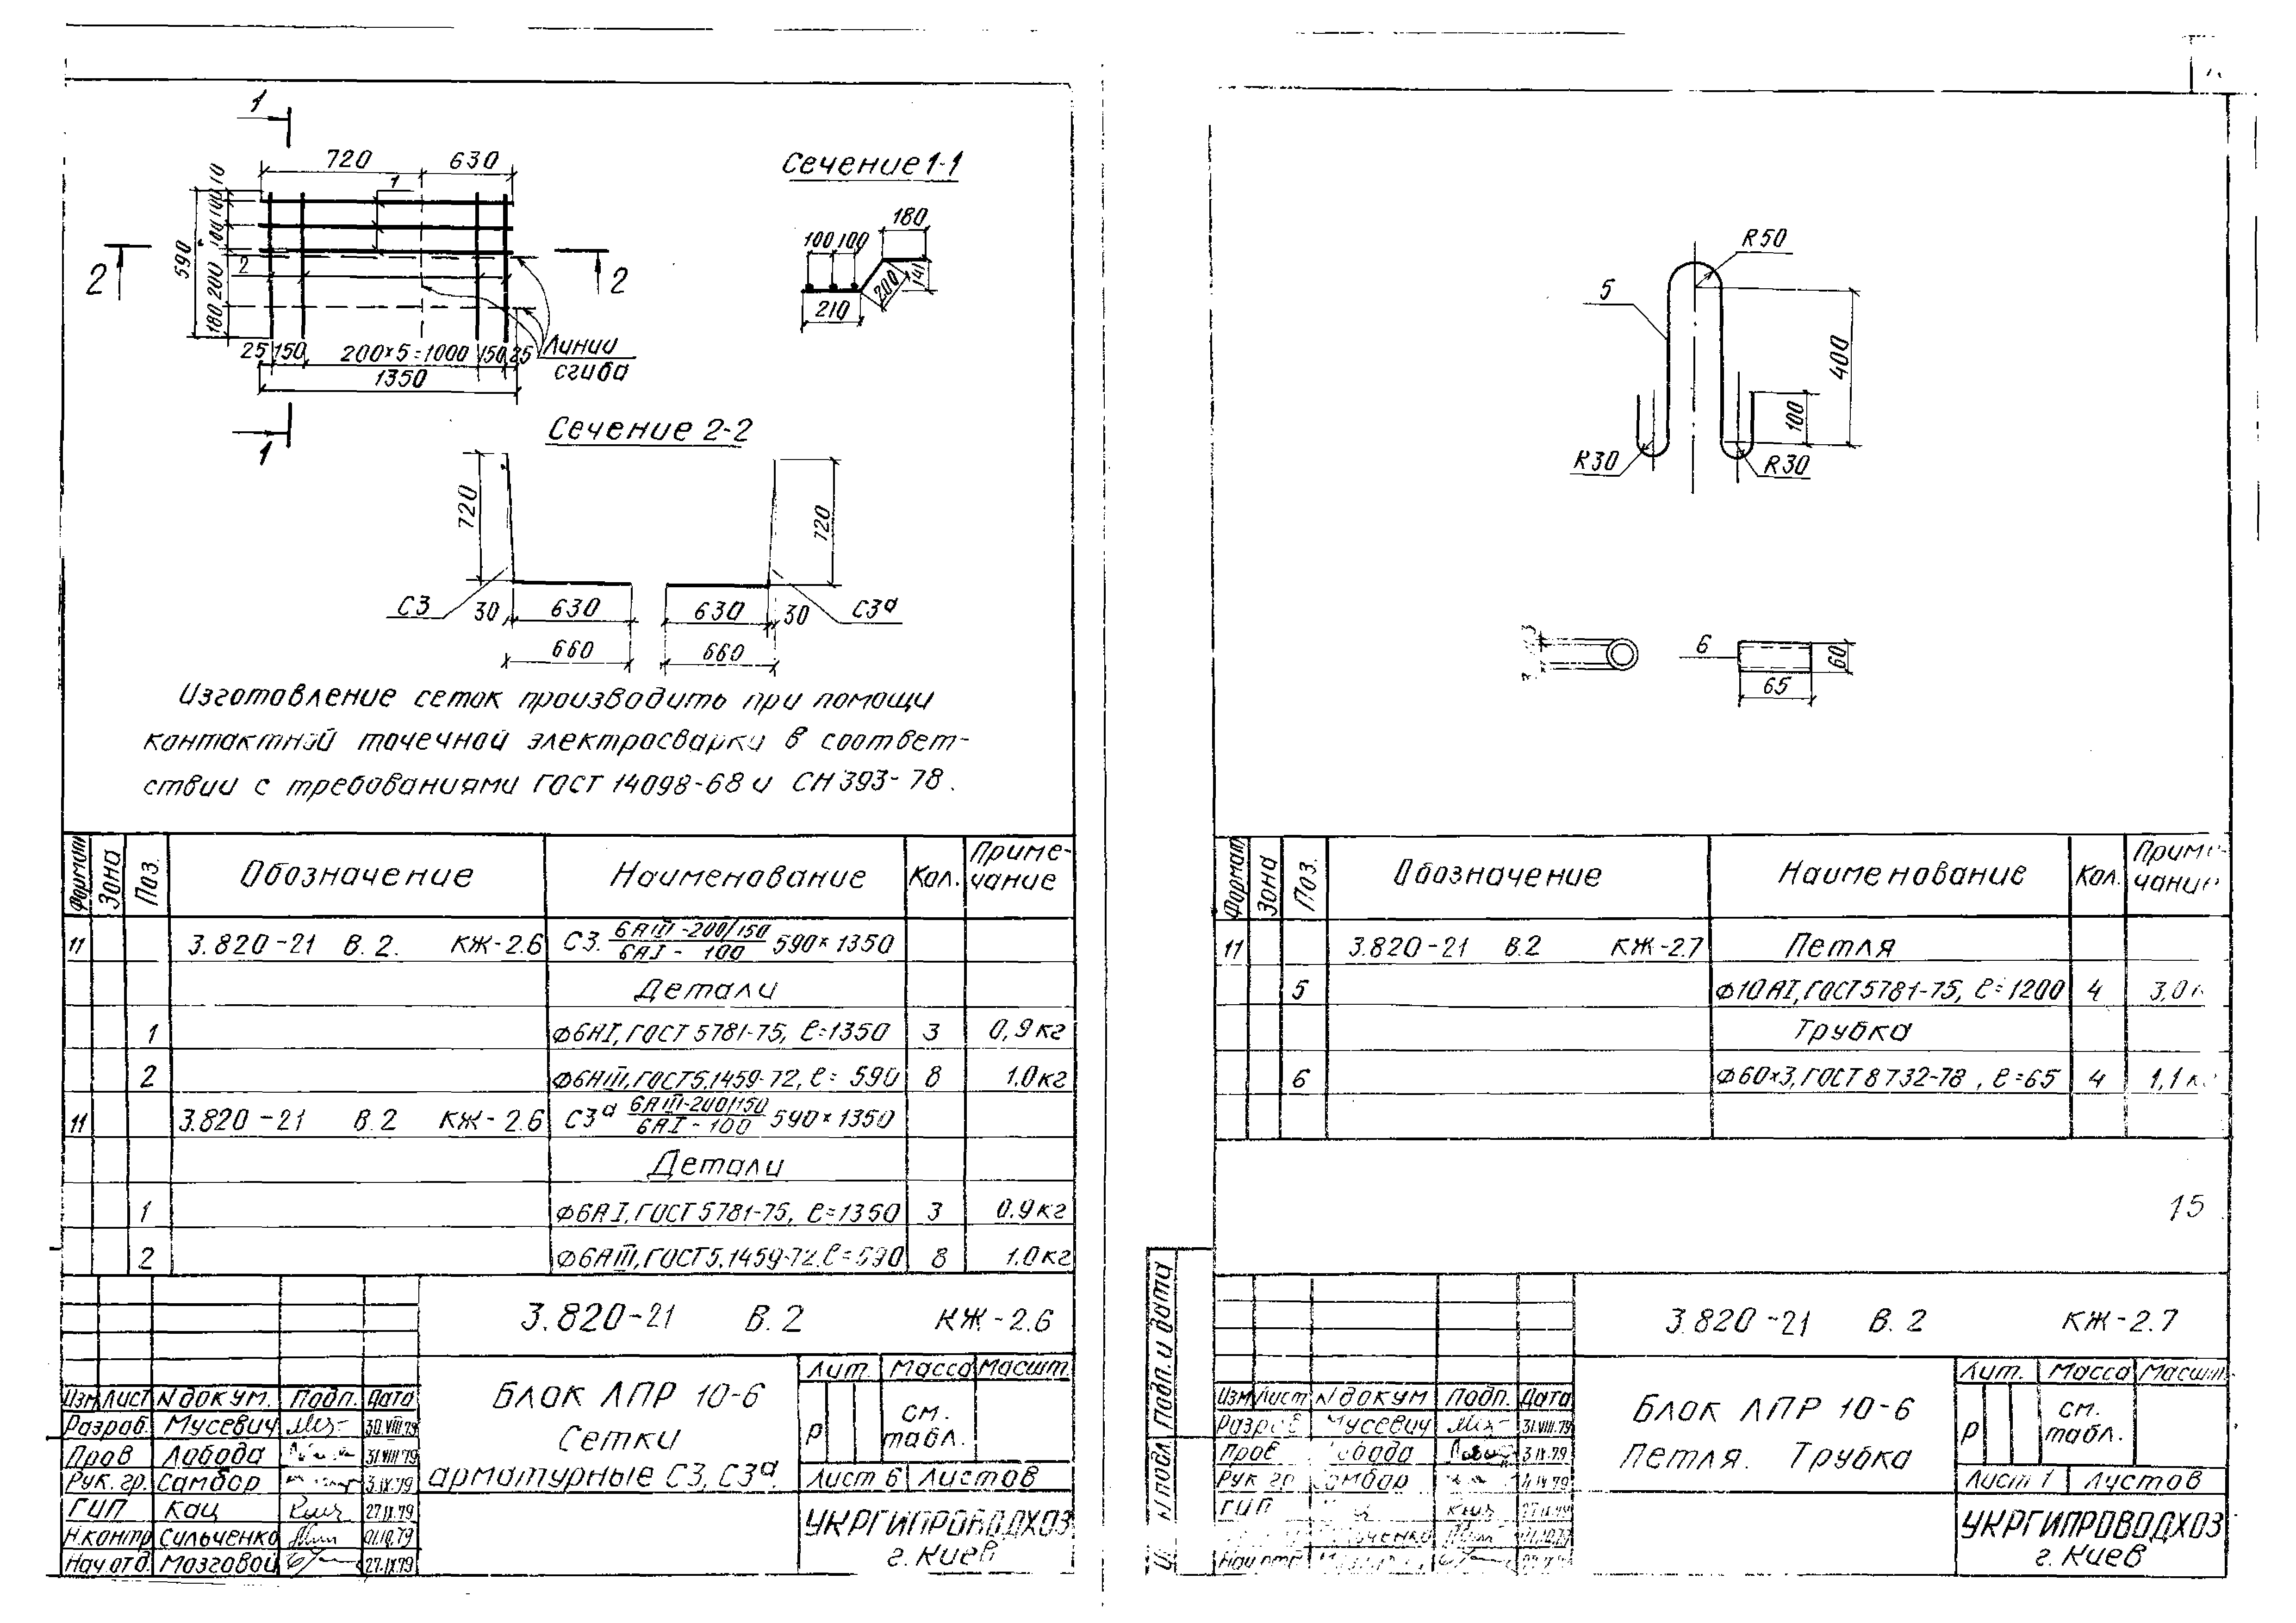 1
720 630
Сечение 1-1
10
100
100
200
180
590
1
2
2 2
180
100 100
200
141
210
25 150 200×5=1000 150 25
1350
Линии
сгиба
1
Сечение 2-2
720
720
С3 30 630 630 30 С3а
660 660
Изготовление сеток производить при помощи
контактной точечной электросварки в соответ-
ствии с требованиями ГОСТ 14098-68 и СН 393-78.
Формат Зона Поз. Обозначение Наименование Кол. Приме-
чание
11 3.820-21 В.2. КЖ-2.6 С3. 6АIII-200/150 / 6АI-100 590×1350
Детали
1 Ф6АI, ГОСТ 5781-75, ℓ=1350 3 0,9 кг
2 Ф6АIII, ГОСТ 5.1459-72, ℓ= 590 8 1.0 кг
11 3.820-21 В.2 КЖ-2.6 С3а 6АIII-200/150 / 6АI-100 590×1350
Детали
1 Ф6АI, ГОСТ 5781-75, ℓ=1350 3 0.9 кг
2 Ф6АIII, ГОСТ 5.1459-72. ℓ=590 8 1.0 кг
3.820-21 В.2 КЖ-2.6
Изм Лист N докум. Подп. Дата
Разраб. Мусевич 30.VIII.79
Пров Лобода 31.VIII.79
Рук. гр. Самбор 3.IX.79
ГИП Кац 27.IX.79
Н.контр Сильченко 01.10.79
Нач.отд. Мозговой 27.IX.79
Блок ЛПР 10-6
Сетки
арматурные С3, С3а.
Лит. Масса Масшт.
Р см.
табл.
Лист 6 Листов
УКРГИПРОВОДХОЗ
г. Киев
R50
5
400
100
R30 R30
3
6
60
65
Формат Зона Поз. Обозначение Наименование Кол.
11 3.820-21 В.2 КЖ-2.7 Петля
5 Ф10АI, ГОСТ 5781-75, ℓ=1200 4 3,0
Трубка
6 Ф60×3, ГОСТ 8732-78, ℓ=65 4 1,1
15
Подп. и дата
N подл
3.820-21 В.2 КЖ-2.7
Изм Лист N докум Подп. Дата
Мусевич 31.VIII.79
Пров 3.IX.79
Рук гр 4.IX.79
ГИП
Блок ЛПР 10-6
Петля. Трубка
Лит. Масса Масшт.
Р см.
табл.
Лист 1 Листов
УКРГИПРОВОДХОЗ
г. Киев